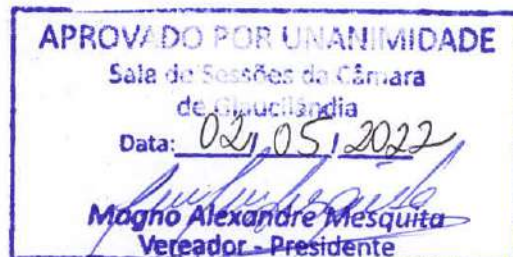 APROVADO POR UNANIMIDADE
Sala de Sessões da Câmara
de Glaucilândia
Data: 02/05/2022
Magno Alexandre Mesquita
Vereador - Presidente